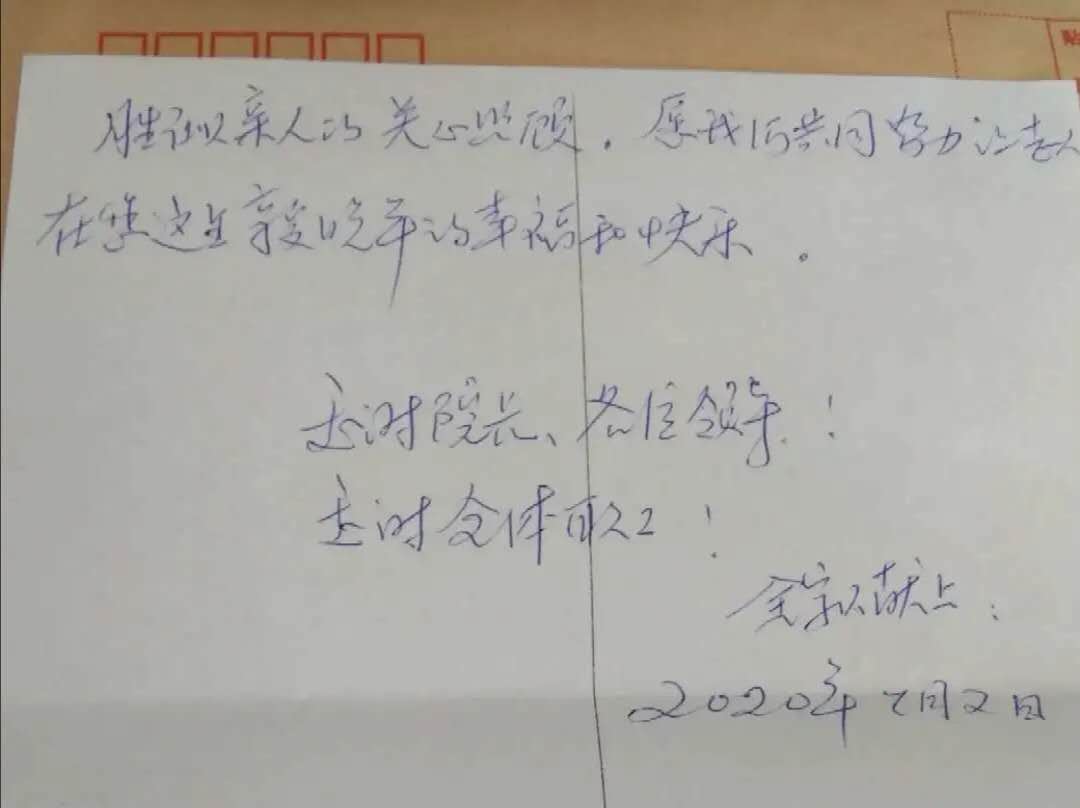 胜似亲人的关心照顾，愿我们共同努力让老人
在您这里享受晚年的幸福和快乐。
感谢院长、各位领导！
感谢全体职工！
全家人献上
2020年7月2日
贴